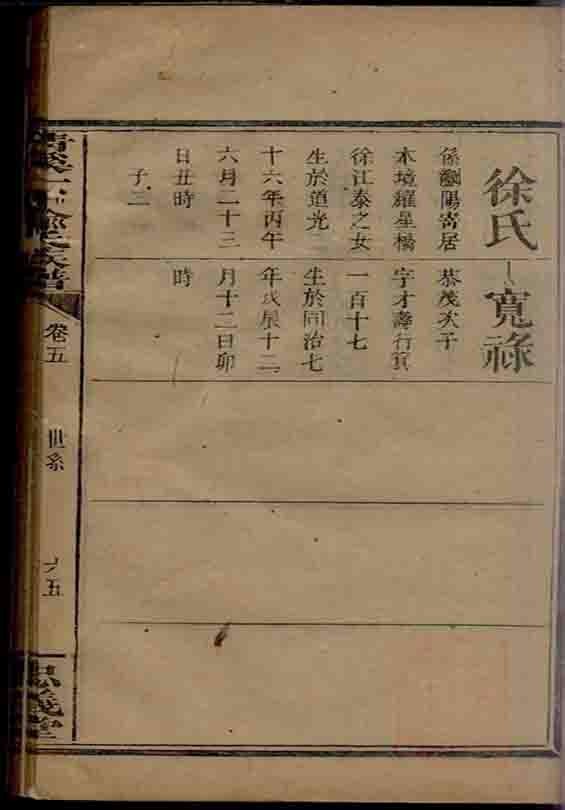 徐氏
係瀏陽寄居
本境耀星橋
徐江泰之女
生於道光二
十六年丙午
六月二十三
日丑時
子二
寬祿
恭茂次子
字才壽行
一百十七
生於同治七
年戊辰十二
月十二日卯
時
氏族譜
卷五
世系
五
忠義堂